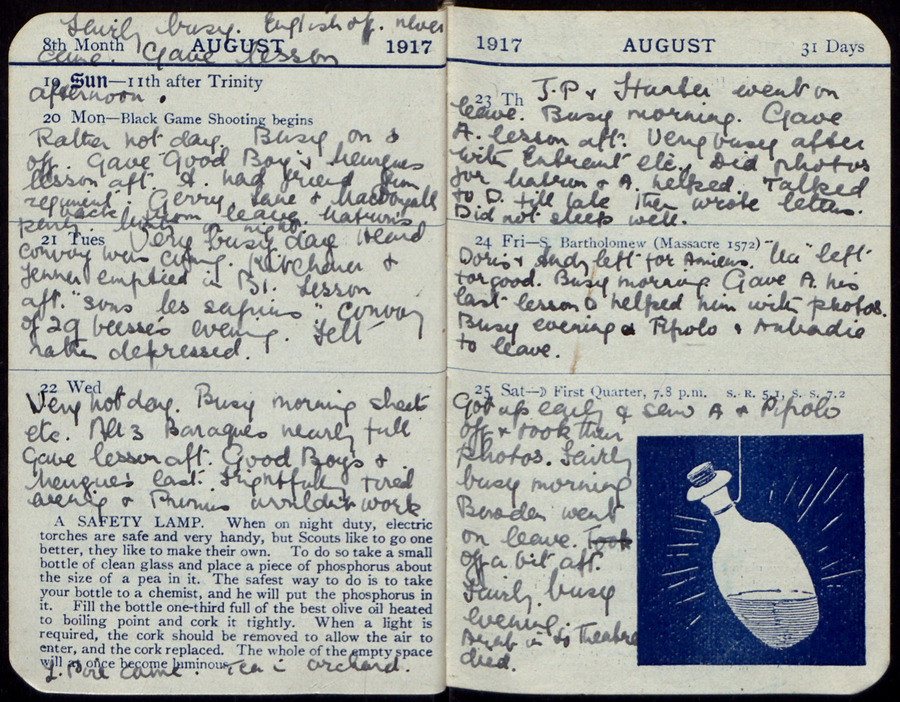 Fairly busy. English off. never
8th Month AUGUST 1917
came. Gave lesson
19 Sun—11th after Trinity
afternoon.
20 Mon—Black Game Shooting begins
Rather hot day. Busy on &
off. Gave Good Boy &
lesson aft. A. had friend from
regiment. Gerry, Lane & MacDougall
back from leave. Matron's
party at night.
21 Tues Very busy day Heard
convoy was coming. Kitchener &
Jenner emptied in B1. Lesson
aft. "sous les sapins" Convoy
of 29 blessés evening. Felt
rather depressed.
22 Wed
Very hot day. Busy morning sheets
etc. All 3 Baraques nearly full
Gave lesson aft. Good Boys &
last. Frightfully tired
evening & Primus wouldn't work
A SAFETY LAMP. When on night duty, electric
torches are safe and very handy, but Scouts like to go one
better, they like to make their own. To do so take a small
bottle of clean glass and place a piece of phosphorus about
the size of a pea in it. The safest way to do is to take
your bottle to a chemist, and he will put the phosphorus in
it. Fill the bottle one-third full of the best olive oil heated
to boiling point and cork it tightly. When a light is
required, the cork should be removed to allow the air to
enter, and the cork replaced. The whole of the empty space
will at once become luminous.
came. Tea in orchard.
1917 AUGUST 31 Days
23 Th J.P & Hunter went on
leave. Busy morning. Gave
A. lesson aft. Very busy after
with Entrant etc. Did photos
for Matron & A. helped. Talked
to D. till late then wrote letters.
Did not sleep well.
24 Fri—S. Bartholomew (Massacre 1572) left
Doris & Andy left for Amiens.
for good. Busy morning Gave A. his
last lesson & helped him with photos.
Busy evening & Pipolo & Aubadie
to leave.
25 Sat—☽ First Quarter, 7.8 p.m. S. R. 5.1, S. S. 7.2
Got up early & saw A & Pipolo
off & took their
photos. Fairly
busy morning
Borden went
on leave. Took
off a bit aft.
Fairly busy
evening.
Arab in to Theatre
died.